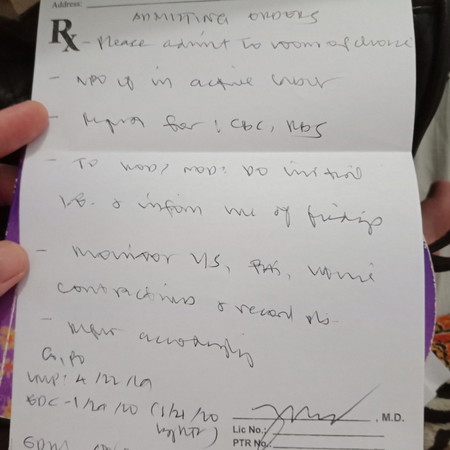 Address:
ADMITTING ORDERS
Rx - Please admit to room of choice
- NPO if in active labor
- Request for: CBC, RBS
- To ROD/ : Do initial
I.E. & inform me of findings
- Monitor V/S, FHT, uterine
contractions & record pls.
- Refer accordingly
G1P0
LMP: 4/22/19
EDC - 1/29/20 (1/21/20
by UTZ)
, M.D.
Lic No.:
PTR No.: